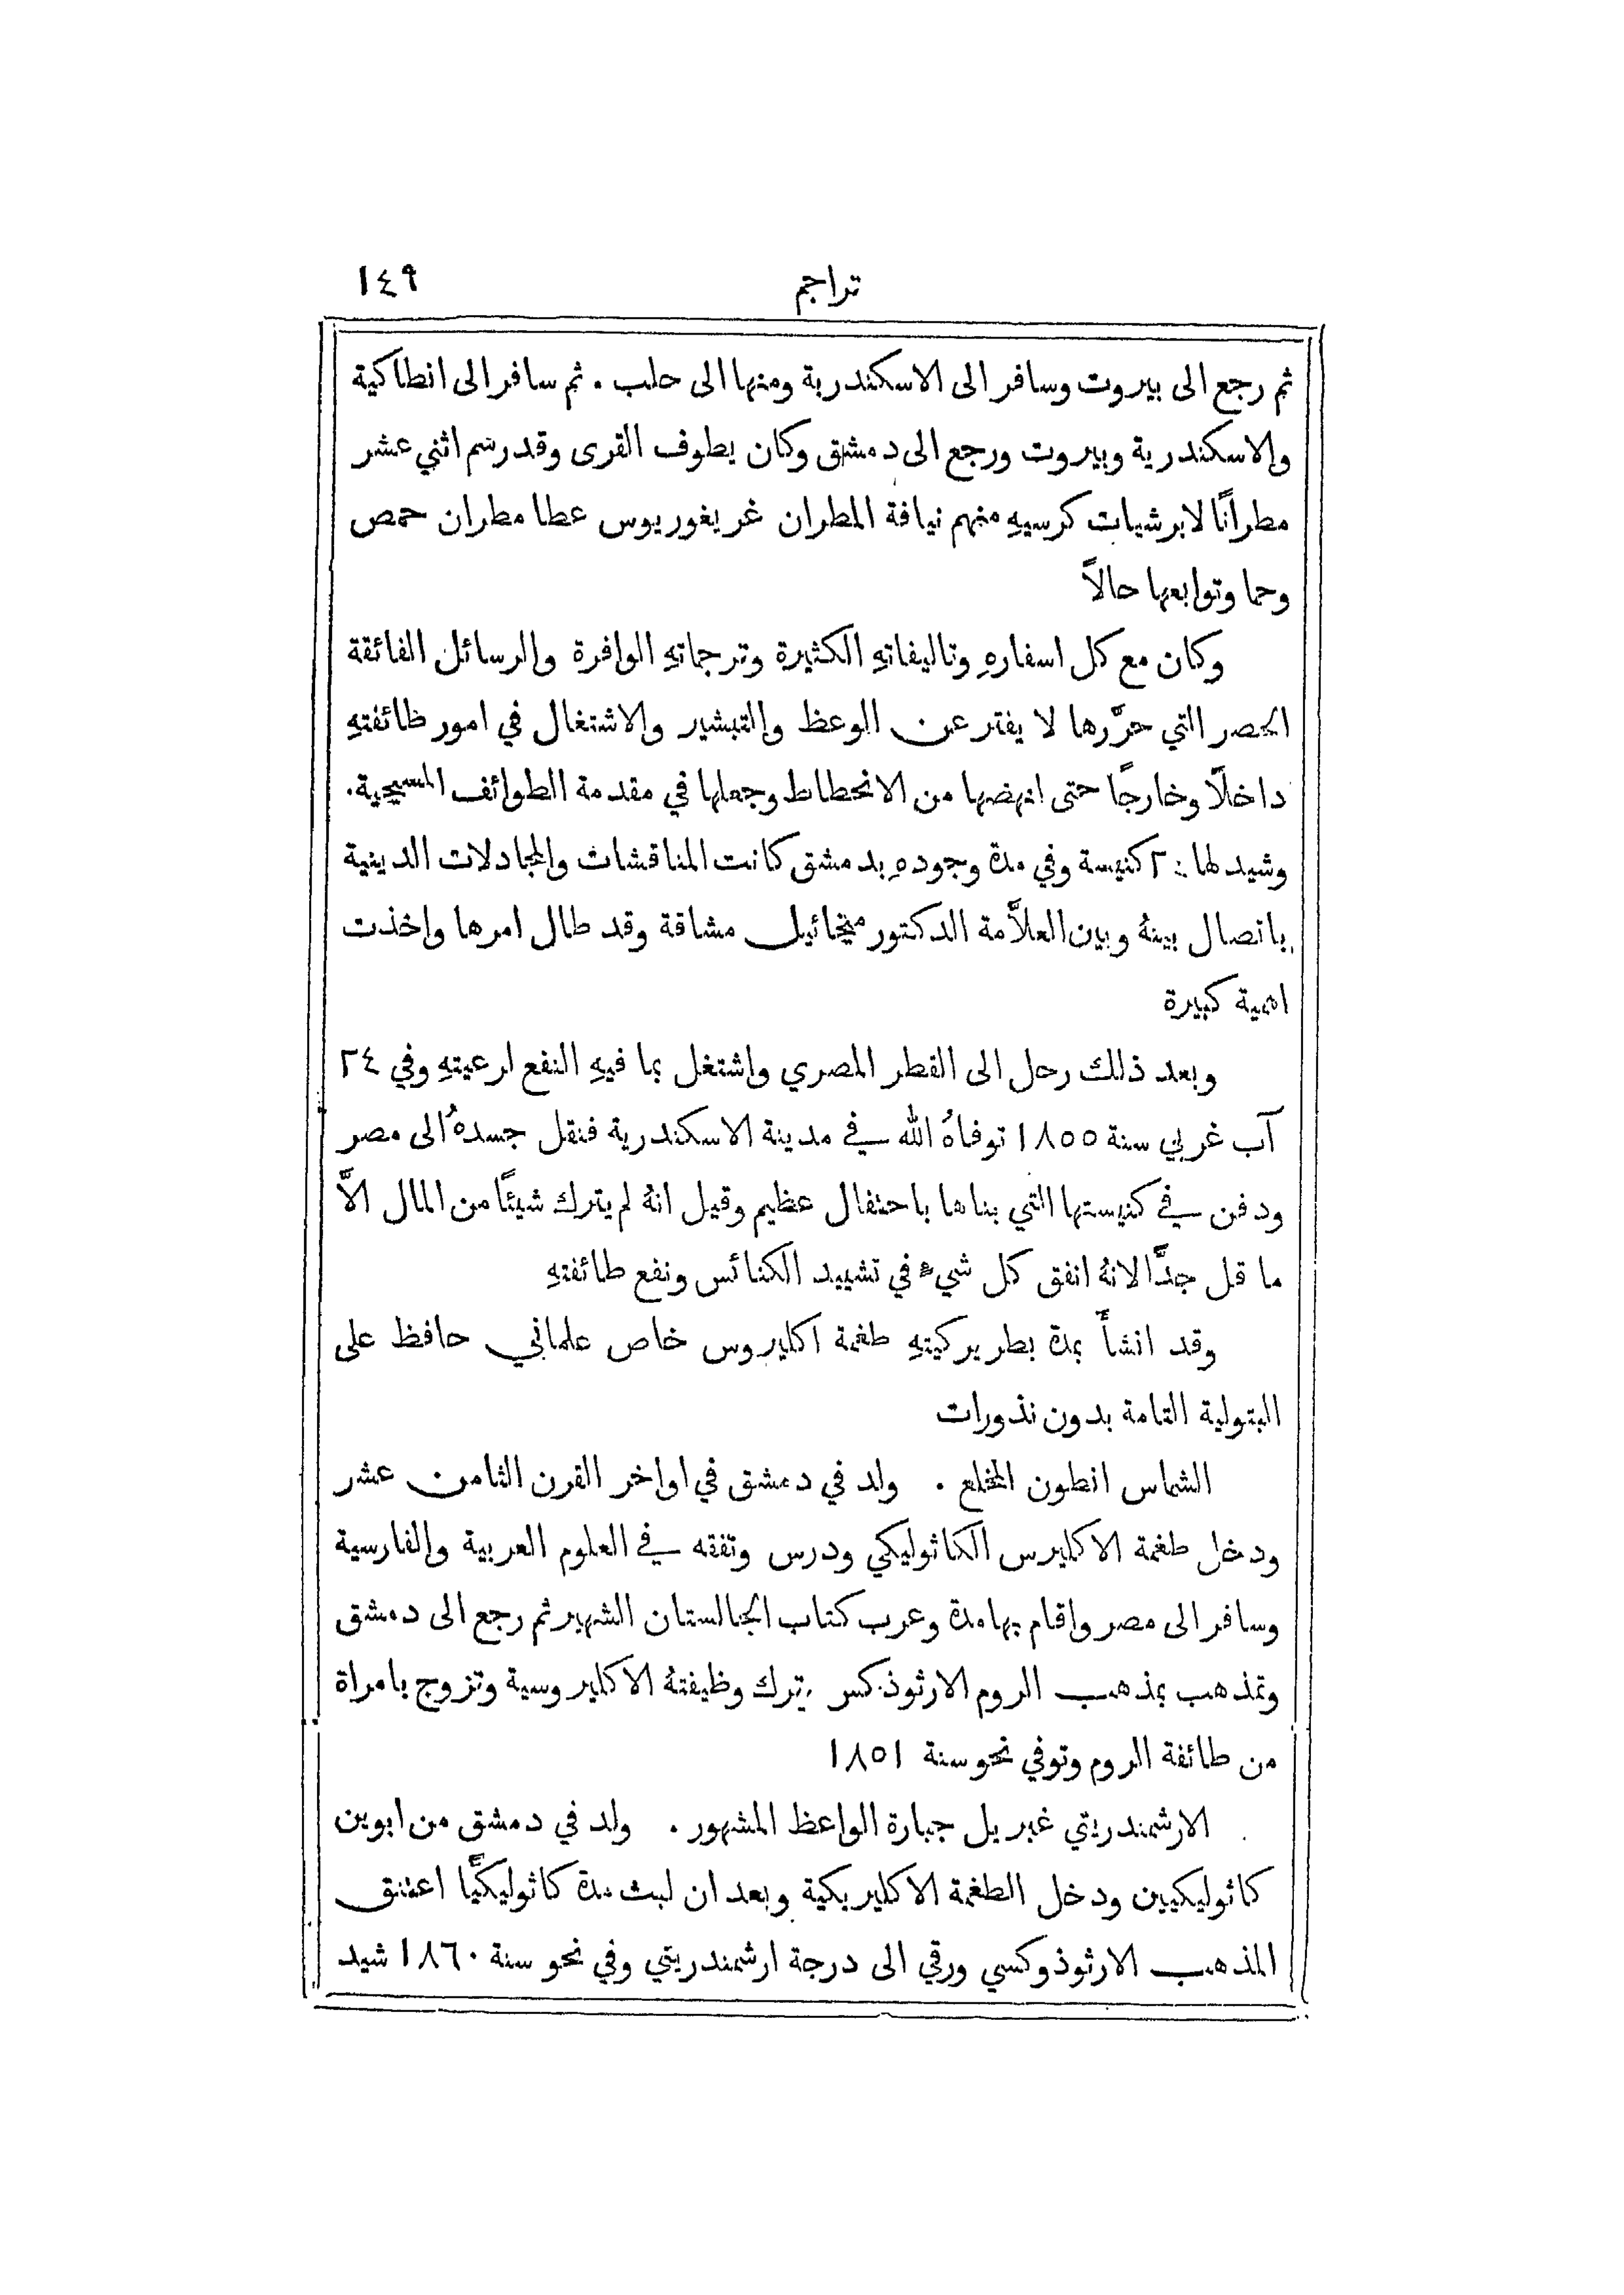 تراجم ١٤٩
ثم رجع الى بيروت وسافر الى الاسكندرية ومنها الى حلب . ثم سافر الى انطاكية
والاسكندرية وبيروت ورجع الى دمشق وكان يطوف القرى وقد رسم اثني عشر
مطرانًا لابرشيات كرسيهِ منهم نيافة المطران غريغوريوس عطا مطران حمص
وحما وتوابعها حالاً
وكان مع كل اسفارهِ وتاليفاتهِ الكثيرة وترجماتهِ الوافرة والرسائل الفائقة
الحصر التي حرَّرها لا يفتر عن الوعظ والتبشير والاشتغال في امور طائفتهِ
داخلًا وخارجًا حتى انهضها من الانحطاط وجعلها في مقدمة الطوائف المسيحية.
وشيد لها كنيسة وفي مدة وجودهِ بدمشق كانت المناقشات والمجادلات الدينية
باتصال بينهُ وبين العلاَّمة الدكتور ميخائيل مشاقة وقد طال امرها واخذت
اهمية كبيرة
وبعد ذلك رحل الى القطر المصري واشتغل بما فيهِ النفع لرعيتهِ وفي ٢٤
آب غربي سنة ١٨٥٥ توفاهُ الله في مدينة الاسكندرية فنقل جسدهُ الى مصر
ودفن في كنيستها التي بناها باحتفال عظيم وقيل انهُ لم يترك شيئًا من المال الاَّ
ما قل جدًّا لانهُ انفق كل شيءٍ في تشييد الكنائس ونفع طائفتهِ
وقد انشأَ بمدة بطريركيتهِ طغمة اكليروس خاص علماني حافظ على
البتولية التامة بدون نذورات
الشماس انطون المخلع . ولد في دمشق في اواخر القرن الثامن عشر
ودخل طغمة الاكليرس الكاثوليكي ودرس وتفقه في العلوم العربية والفارسية
وسافر الى مصر واقام بها مدة وعرب كتاب الجالستان الشهير ثم رجع الى دمشق
وتمذهب بمذهب الروم الارثوذكس وترك وظيفتهُ الاكليروسية وتزوج بامراة
من طائفة الروم وتوفي نحو سنة ١٨٥١
الارشمندريتي غبريل جبارة الواعظ المشهور . ولد في دمشق من ابوين
كاثوليكيين ودخل الطغمة الاكليريكية وبعد ان لبث مدة كاثوليكيًّا اعتنق
المذهب الارثوذوكسي ورقي الى درجة ارشمندريتي وفي نحو سنة ١٨٦٠ شيد